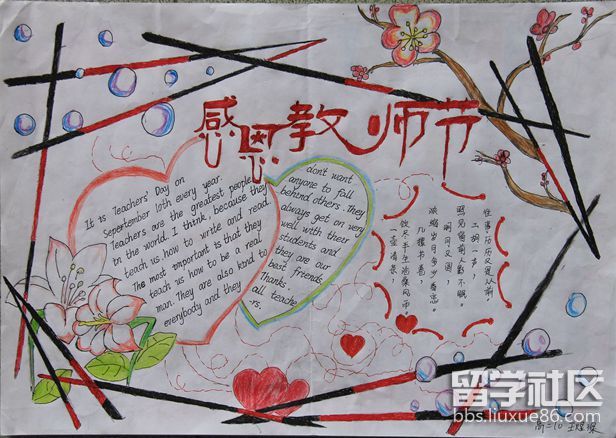 感恩教师节
It is Teachers' Day on
Sepertember 10th every year.
Teachers are the greatest people
in the world. I think, because they
teach us how to write and read.
The most important is that they
teach us how to be a real
man. They are also kind to
everybody and they
don't want
anyone to fall
behind others. They
always get on very
well with their
students and
they are our
best friends.
Thanks.
all teache
-rs.
往事历历又从前
二胡一声，
明月又圆
照见
浓缩岁月多少
几缕书香，
饮尽半生沧桑风雨
一壶清茶！
高二10 王
留学社区
bbs.liuxue86.com